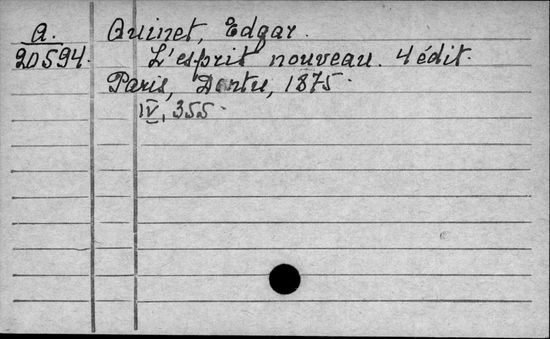 A. Quinet, Edgar.
20594. L'esprit nouveau. 4 édit.
Paris, Dentu, 1875.
IV, 355.